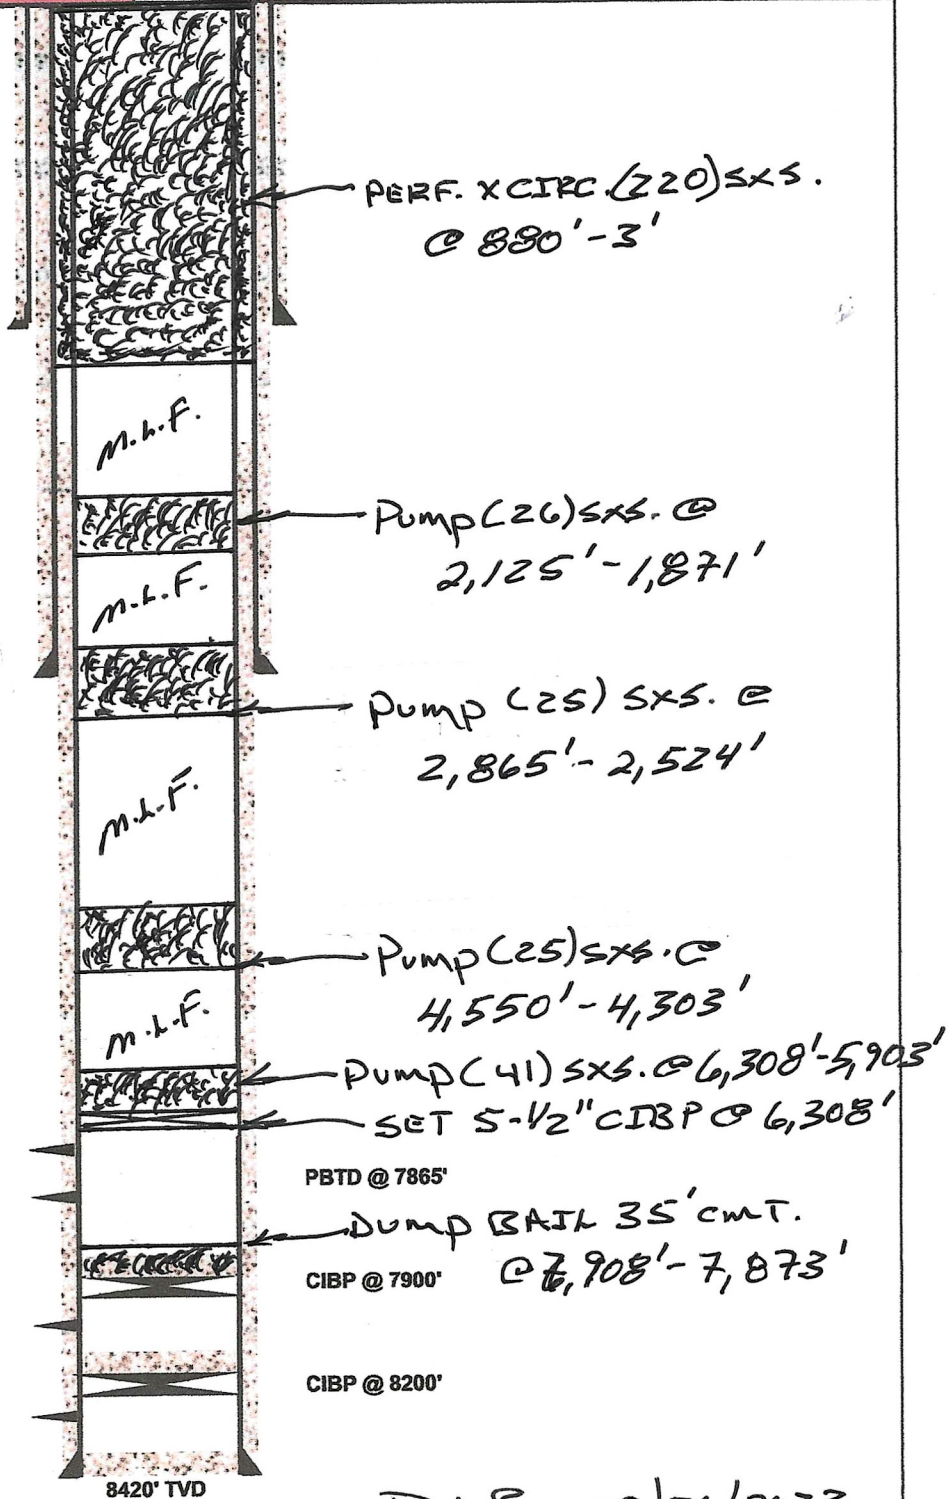 PERF. X CIRC. (220) SXS.
@ 880'-3'
M.L.F.
Pump (26) SXS. @
2,125'-1,871'
M.L.F.
Pump (25) SXS. @
2,865'-2,524'
M.L.F.
Pump (25) SXS. @
4,550'-4,303'
M.L.F.
Pump (41) SXS. @ 6,308'-5,903'
SET 5-1/2" CIBP @ 6,308'
PBTD @ 7865'
Dump BAIL 35' CMT.
@ 7,908'-7,873'
CIBP @ 7900'
CIBP @ 8200'
8420' TVD